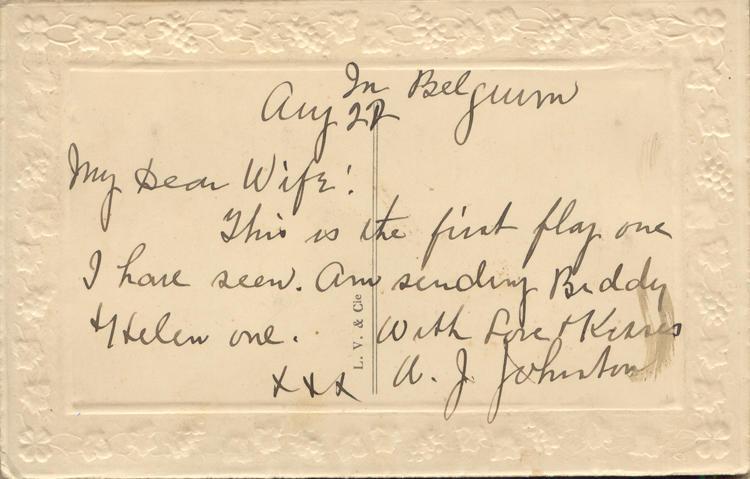 In Belgium
Aug 27
My Dear Wife!
This is the first flag one
I have seen. Am sending Biddy
& Helen one. With Love & Kisses
xxx W. J. Johnston
L. V. & Cie